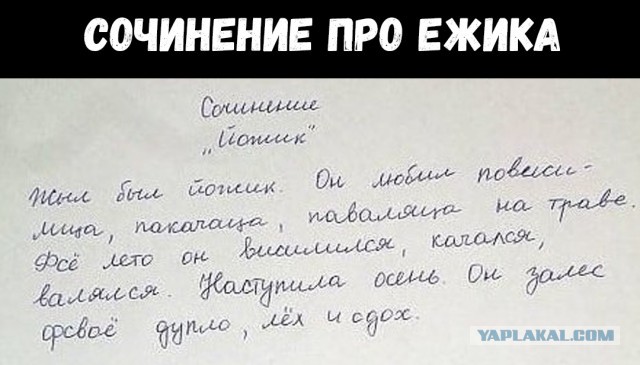 СОЧИНЕНИЕ ПРО ЕЖИКА
Сочинение
„Йожик"
Жыл был йожик. Он любил повеси-
лица, пакачаца, паваляца на траве.
Фсё лето он висилился, качался,
валялся. Наступила осень. Он залес
фсваё дупло, лёх и сдох.
YAPLAKAL.COM